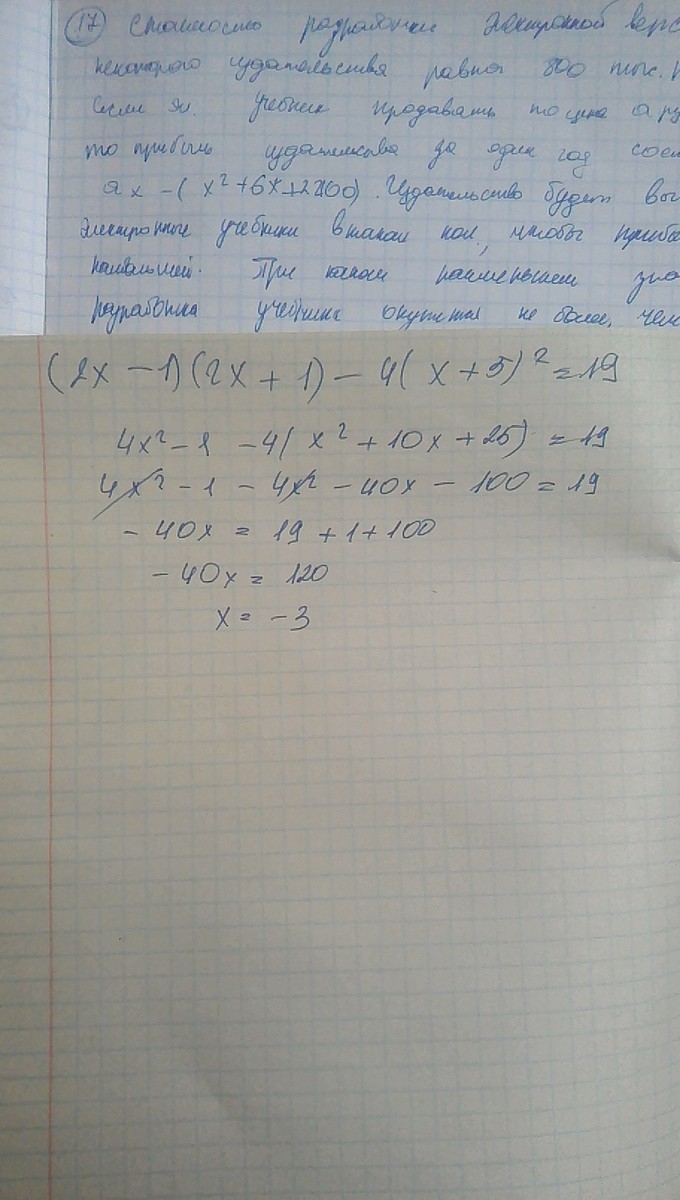 17 Стоимость разработки электронной верс
некоторого издательства равна 800 тыс.
Если эл. учебник продавать по цене а ру
то прибыль издательства за один год сост
ах - (х² + 6х + 22100). Издательство будет вып
электронные учебники в таком кол., чтобы прибы
наибольшей. При каком наименьшем знач
разработка учебника окупится не более, чем
(2x - 1)(2x + 1) - 4(x + 5)² = 19
4x² - 1 - 4(x² + 10x + 25) = 19
4x² - 1 - 4x² - 40x - 100 = 19
- 40x = 19 + 1 + 100
- 40x = 120
x = -3